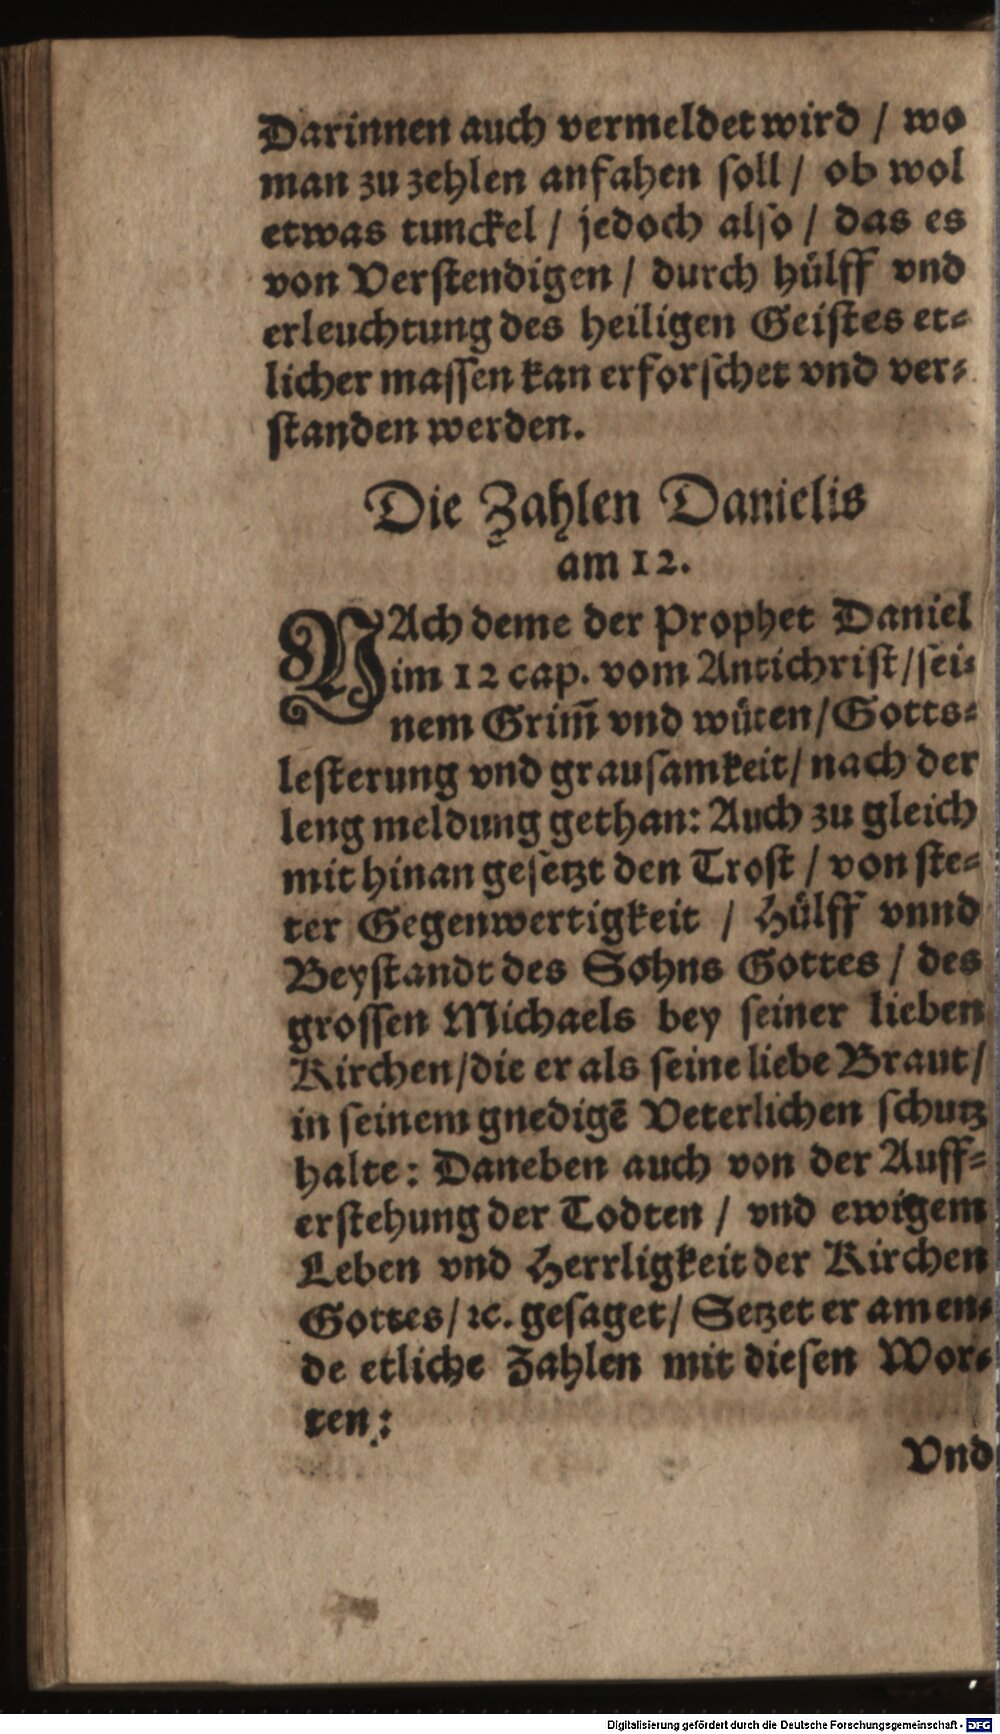 Darinnen auch vermeldet wird / wo
man zu zehlen anfahen soll / ob wol
etwas tunckel / jedoch also / das es
von Verstendigen / durch hülff vnd
erleuchtung des heiligen Geistes et⸗
licher massen kan erforschet vnd ver⸗
standen werden.
Die Zahlen Danielis
am 12.
NAch deme der Prophet Daniel
im 12 cap. vom Antichrist / sei⸗
nem Grim̃ vnd wüten / Gotts⸗
lesterung vnd grausamkeit / nach der
leng meldung gethan: Auch zu gleich
mit hinan gesetzt den Trost / von ste⸗
ter Gegenwertigkeit / Hülff vnnd
Beystandt des Sohns Gottes / des
grossen Michaels bey seiner lieben
Kirchen / die er als seine liebe Braut /
in seinem gnedigē Veterlichen schutz
halte: Daneben auch von der Auff⸗
erstehung der Todten / vnd ewigem
Leben vnd Herrligkeit der Kirchen
Gottes / ꝛc. gesaget / Setzet er am en⸗
de etliche Zahlen mit diesen Wor⸗
ten:
Vnd
Digitalisierung gefördert durch die Deutsche Forschungsgemeinschaft - DFG